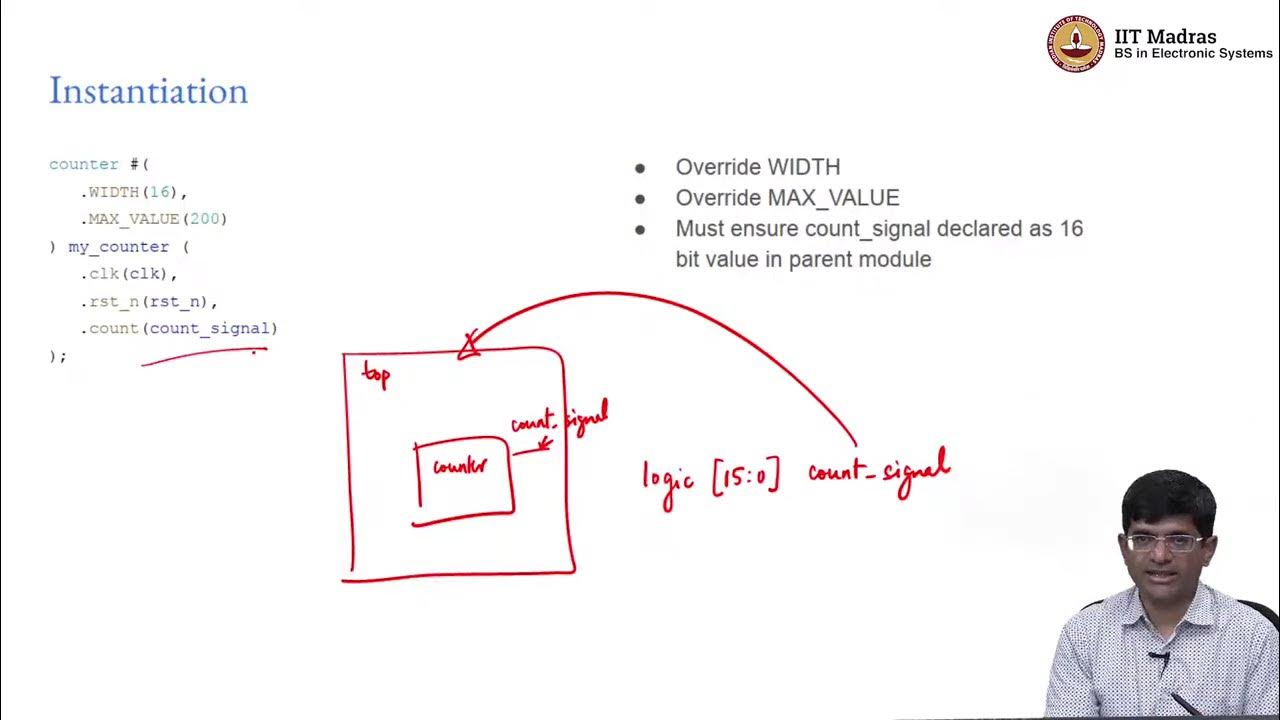 IIT Madras
BS in Electronic Systems
Instantiation
counter #(
.WIDTH(16),
.MAX_VALUE(200)
) my_counter (
.clk(clk),
.rst_n(rst_n),
.count(count_signal)
);
● Override WIDTH
● Override MAX_VALUE
● Must ensure count_signal declared as 16
bit value in parent module
top
count_signal
counter
logic [15:0] count_signal